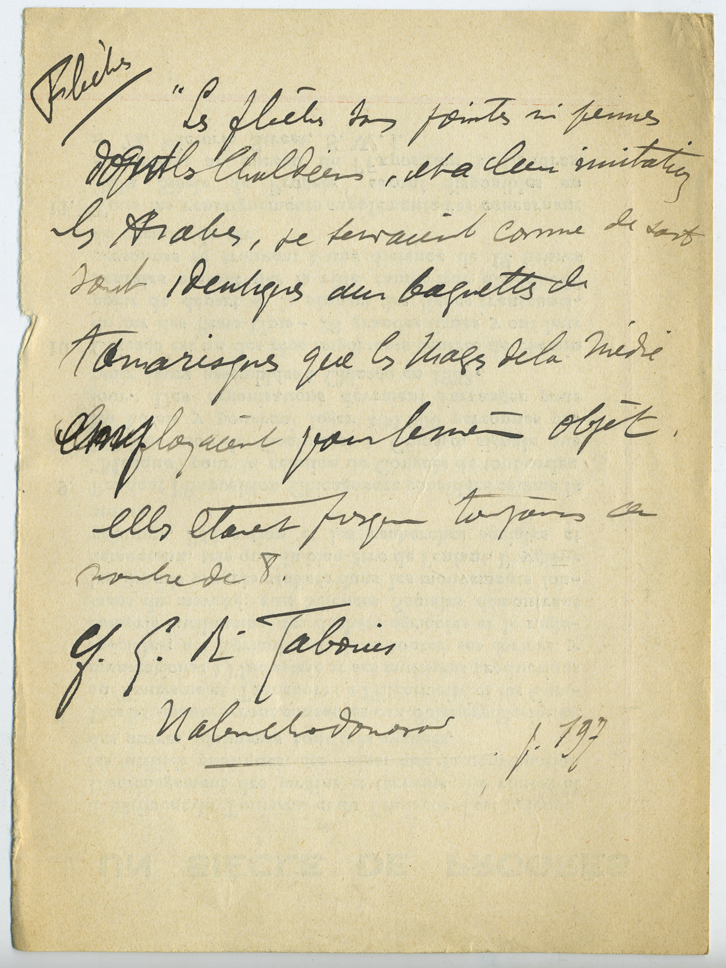 Flèches
"Les flèches sans pointes ni pennes
dont les Chaldéens, et a leur imitation
les Arabes, se servaient comme de sort
sont identiques aux baguettes de
tamarisques que les Mages de la Médie
employaient pour le meme objet.
elles etaient presque toujours au
nombre de 8.
Cf. G. R. Tabouis
Nabuchodonosor p. 197